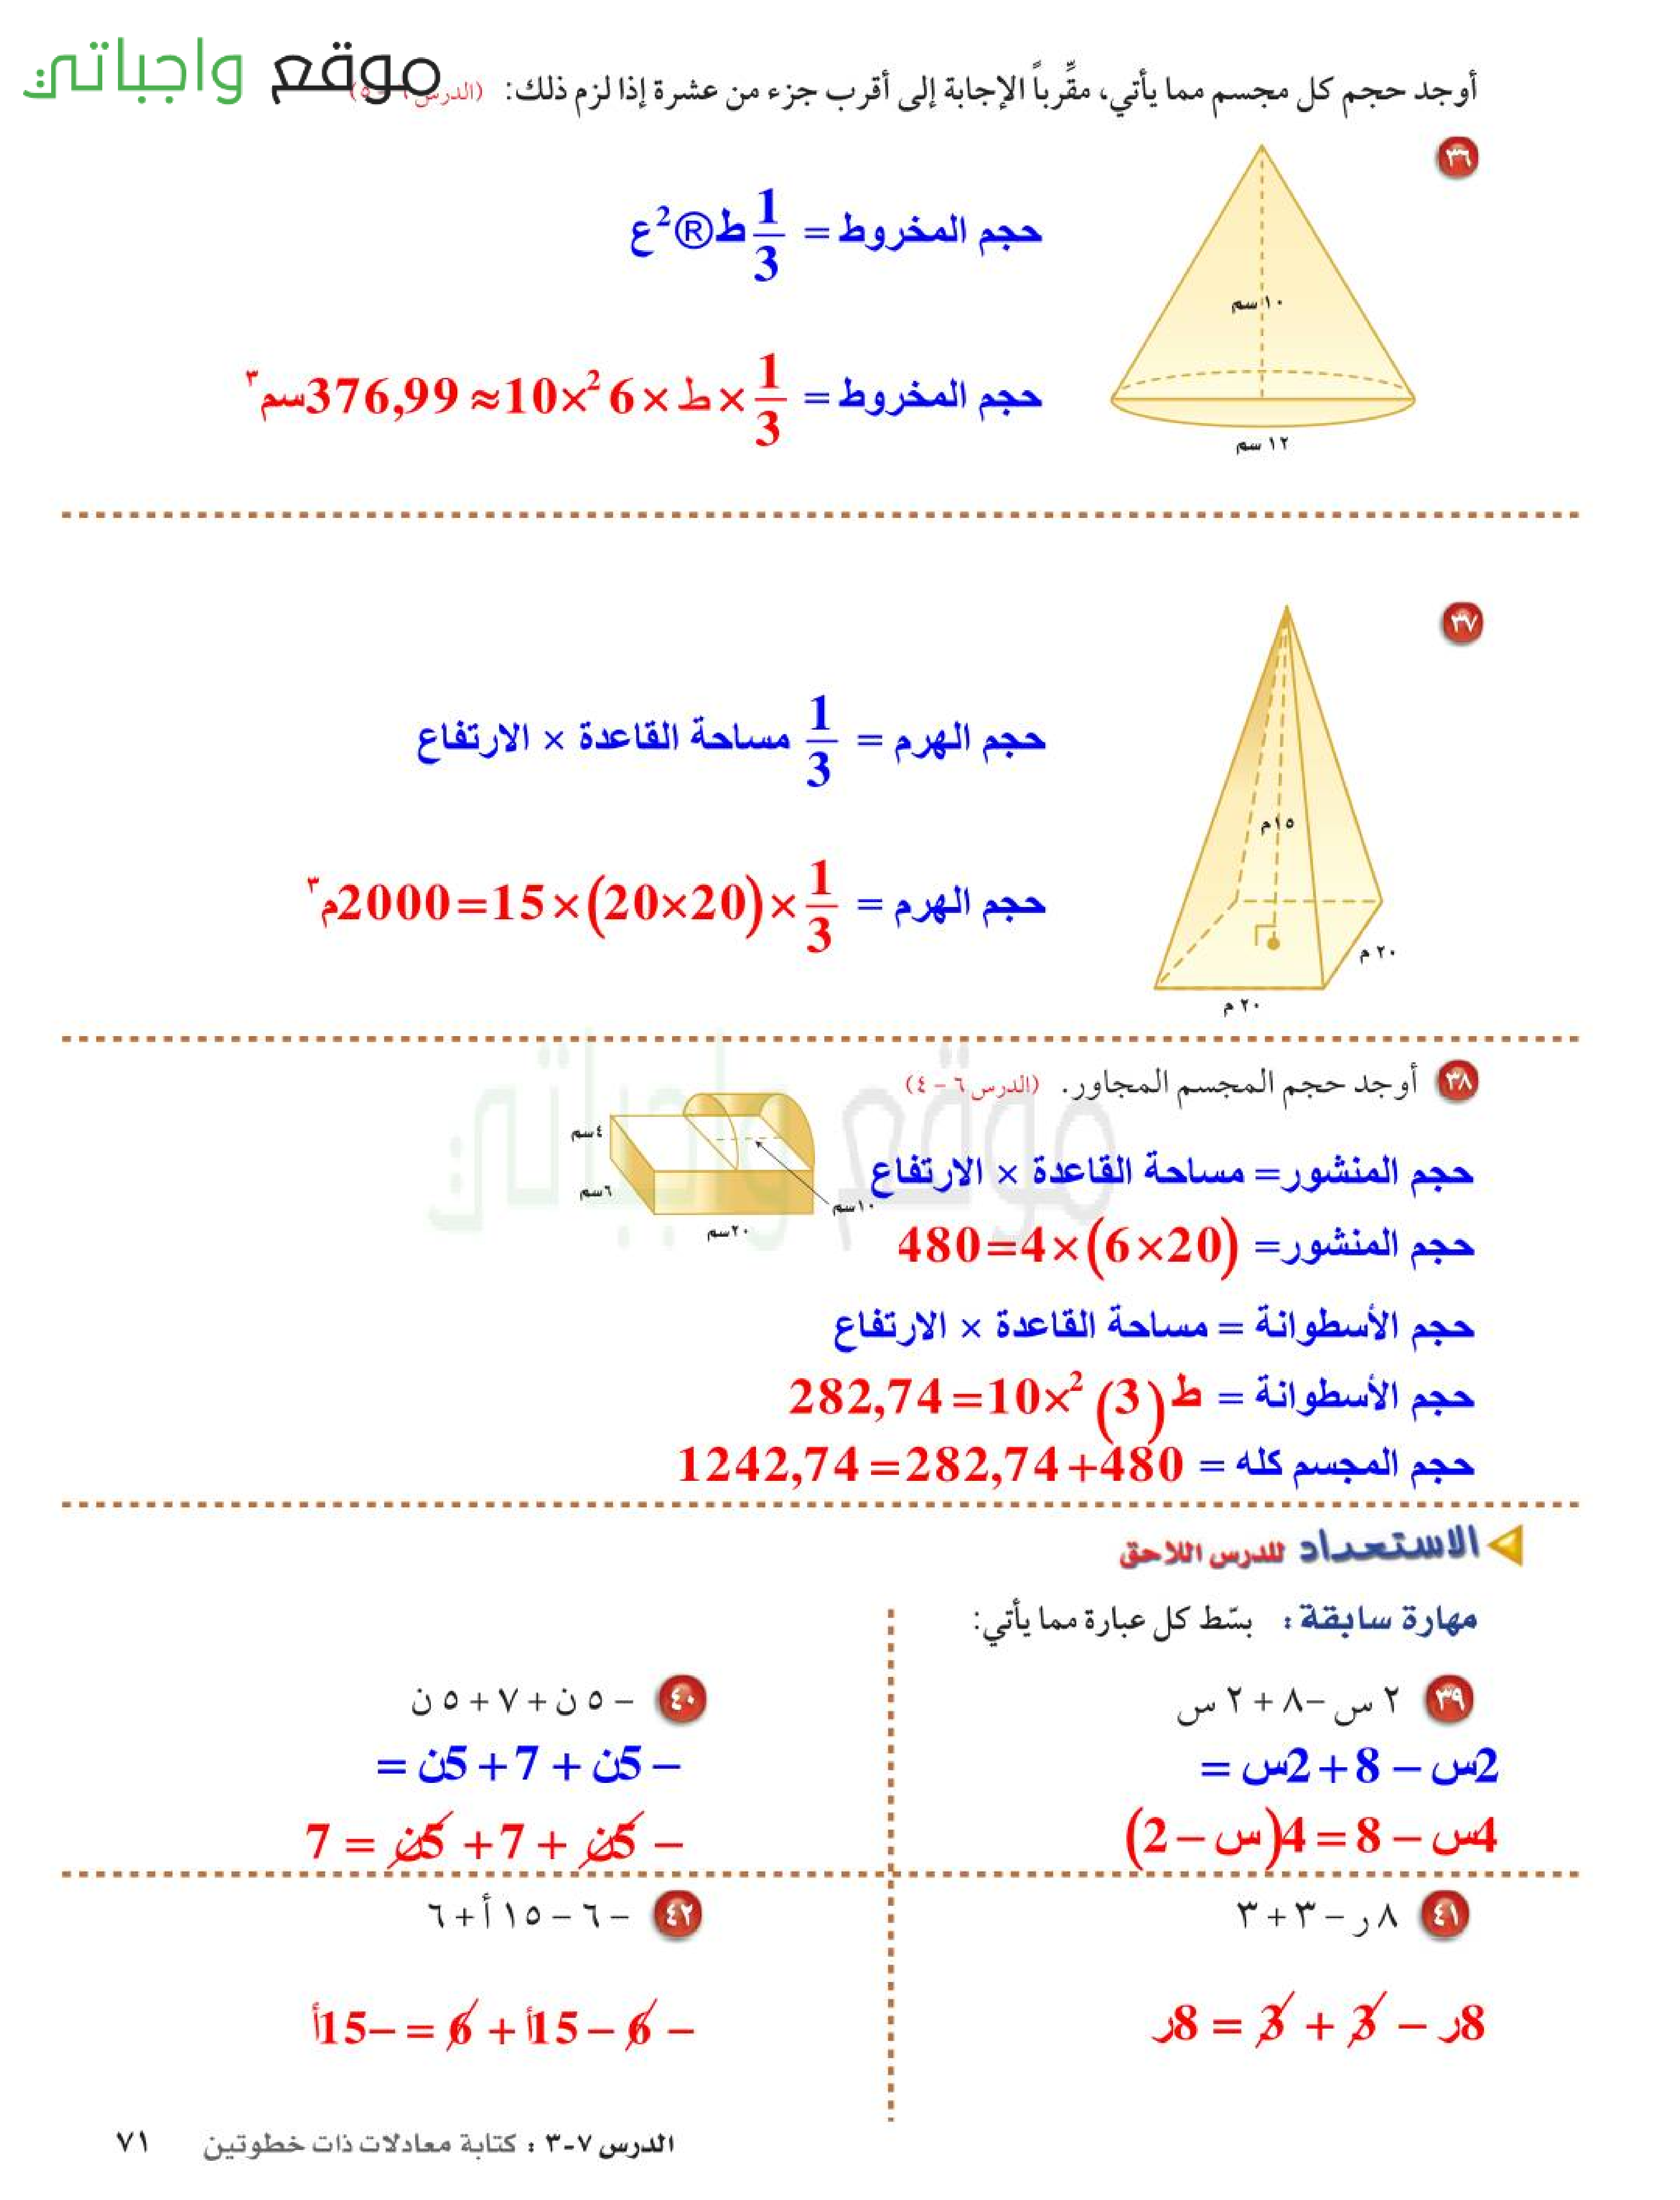 موقع واجباتي
أوجد حجم كل مجسم مما يأتي، مقرِّباً الإجابة إلى أقرب جزء من عشرة إذا لزم ذلك: (الدرس
٣٦
١٠ سم
١٢ سم
حجم المخروط = 1/3 ط®²ع
حجم المخروط = 1/3 × ط × 6² × 10 ≈ 376,99سم٣
٣٧
١٥م
٢٠ م
٢٠ م
حجم الهرم = 1/3 مساحة القاعدة × الارتفاع
حجم الهرم = 1/3 × (20×20) × 15 = 2000م٣
٣٨ أوجد حجم المجسم المجاور. (الدرس ٦ - ٤)
٤سم
٦سم
٢٠سم
١٠سم
موقع واجباتي
حجم المنشور= مساحة القاعدة × الارتفاع
حجم المنشور= (20×6)×4=480
حجم الأسطوانة = مساحة القاعدة × الارتفاع
حجم الأسطوانة = ط(3)²×10=282,74
حجم المجسم كله = 480+282,74=1242,74
الاستعداد للدرس اللاحق
مهارة سابقة : بسّط كل عبارة مما يأتي:
٣٩ ٢ س -٨ + ٢ س
2س – 8 + 2س =
4س – 8 = 4(س – 2)
٤٠ - ٥ ن + ٧ + ٥ ن
– 5ن + 7 + 5ن =
– 5ن + 7 + 5ن = 7
٤١ ٨ ر - ٣ + ٣
8ر – 3 + 3 = 8ر
٤٢ - ٦ - ١٥ أ + ٦
– 6 – 15أ + 6 = –15أ
الدرس ٧-٣ : كتابة معادلات ذات خطوتين ٧١